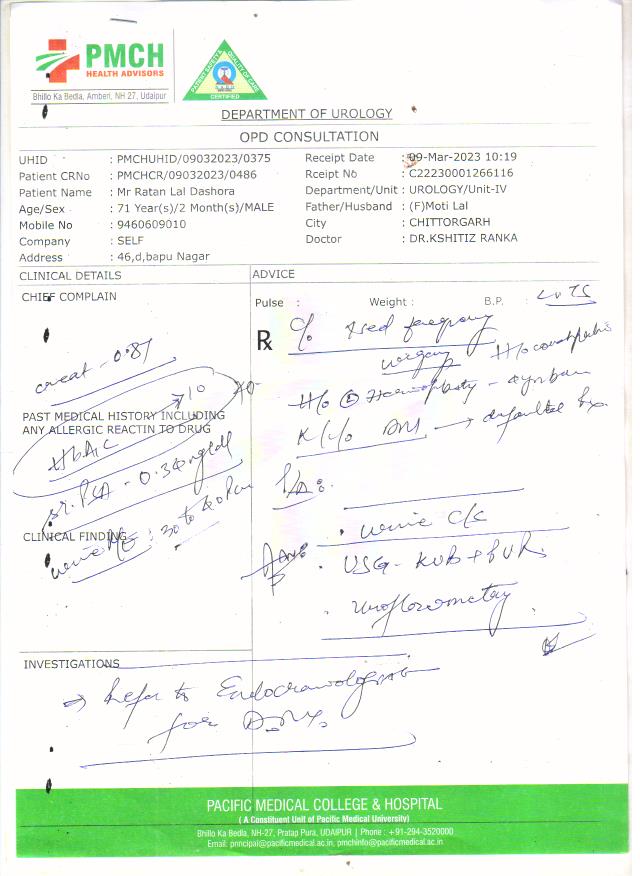 PMCH
HEALTH ADVISORS
Bhillo Ka Bedla, Amberi, NH 27, Udaipur
PATIENT SAFETY & QUALITY OF CARE
CERTIFIED
DEPARTMENT OF UROLOGY
OPD CONSULTATION
UHID : PMCHUHID/09032023/0375
Patient CRNo : PMCHCR/09032023/0486
Patient Name : Mr Ratan Lal Dashora
Age/Sex : 71 Year(s)/2 Month(s)/MALE
Mobile No : 9460609010
Company : SELF
Address : 46,d,bapu Nagar
Receipt Date : 09-Mar-2023 10:19
Rceipt No : C22230001266116
Department/Unit : UROLOGY/Unit-IV
Father/Husband : (F)Moti Lal
City : CHITTORGARH
Doctor : DR.KSHITIZ RANKA
CLINICAL DETAILS
CHIEF COMPLAIN
creat - 0.81
PAST MEDICAL HISTORY INCLUDING
ANY ALLERGIC REACTIN TO DRUG
HbA1C 710
Sr. PSA - 0.34 ng/dl
CLINICAL FINDING
urine R/E : 30 to 40 Pus
ADVICE
Pulse : Weight : B.P. : LUTS
Rx c/o ↑sed frequency
urgency H/o constipation
H/o
K/c/o DM → defaulted Rx
P/A:
Adv: . urine C/S
. USG - KUB + PVR
. Uroflowmetry
INVESTIGATIONS
⇒ Refer to Endocrinologist
for D.M.
PACIFIC MEDICAL COLLEGE & HOSPITAL
( A Constituent Unit of Pacific Medical University)
Bhillo Ka Bedla, NH-27, Pratap Pura, UDAIPUR | Phone : +91-294-3520000
Email: principal@pacificmedical.ac.in, pmchinfo@pacificmedical.ac.in